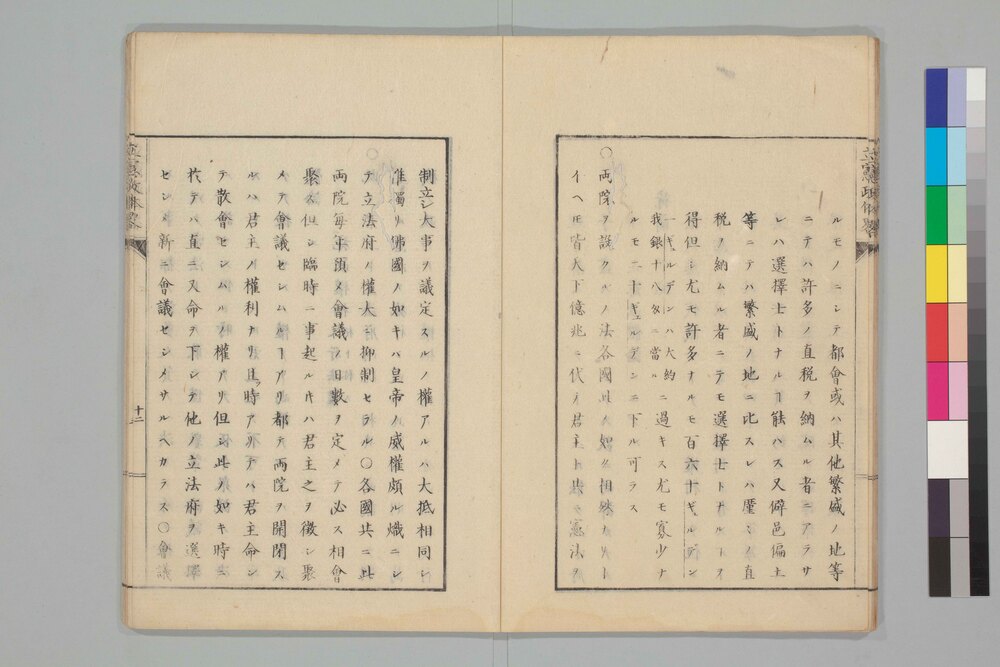 ルモノニシテ都會或ハ其他繁盛ノ地等
ニテハ許多ノ直税ヲ納ムル者ニアラサ
レハ選擇士トナルヿ能ハス又僻邑偏土
等ニテハ繁盛ノ地ニ比スレハ僅々ノ直
税ヲ納ムル者ニテモ選擇士トナルヿヲ
得但シ尤モ許多ナルモ百六十ギルデン
一ギルデンハ大約
我銀十八匁ニ當ル
ニ過キス尤モ寡少ナ
ルモ二十ギュルデンニ下ル可ラス
○両院ヲ設クルノ法各國此ノ如ク相殊ナリト
イヘ𪜈皆天下億兆ニ代リ君主ト共ニ憲法ヲ
制立シ大事ヲ議定スルノ權アルハ大抵相同シ
唯獨リ佛國ノ如キハ皇帝ノ威權頗ル熾ニシ
テ立法府ノ權大ニ抑制セラル○各國共ニ此
両院毎年頭メ會議ノ日數ヲ定メテ必ス相會
聚ス但シ臨時ニ事起ルキハ君主之ヲ徴シ聚
メテ會議セシムルヿアリ都テ両院ヲ開閉ス
ルハ君主ノ權利ナリ且ツ時アリテハ君主命シ
テ散會セシムルノ權アリ但シ此ノ如キ時ニ
於テハ直ニ又命ヲ下シテ他ノ立法府ヲ選擇
セシメ新ニ會議セシメサルヘカラス○會議
立憲政體畧
十二